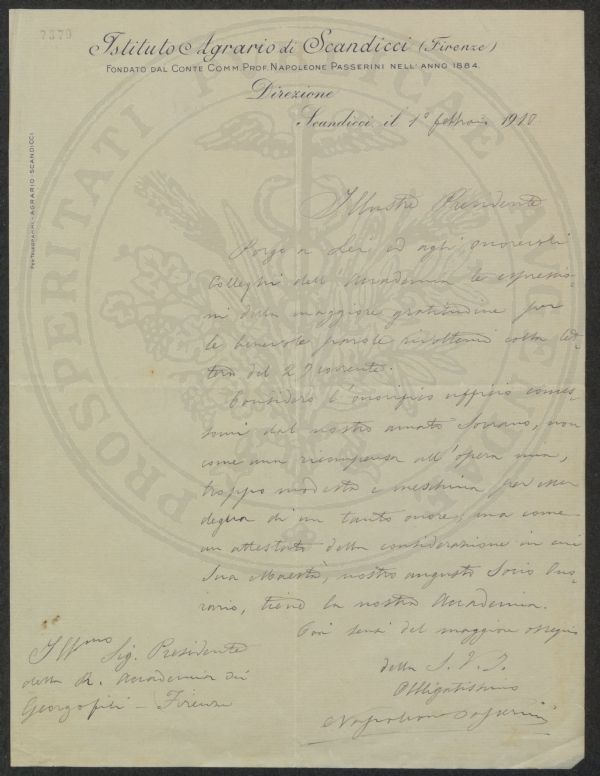 7379
Istituto Agrario di Scandicci (Firenze)
FONDATO DAL CONTE COMM. PROF. NAPOLEONE PASSERINI NELL'ANNO 1884.
Direzione
Scandicci il 1° febbraio 1910
PER TELEGRAMMI - AGRARIO - SCANDICCI
PROSPERITATI PUBLICAE
Illustre Presidente
Porgo a Lei ed agli onorevoli
Colleghi dell'Accademia le espressio-
ni della maggiore gratitudine per
le benevole parole rivoltemi colla let-
tera del 29 corrente.
Considero l'onorifico ufficio confes-
somi dal nostro amato Sovrano, non
come una ricompensa all'opera mia,
troppo modesta e meschina per esser
degna di un tanto onore, ma come
un attestato della considerazione in cui
Sua Maestà, nostro augusto Socio Ono-
rario, tiene la nostra Accademia.
Coi sensi del maggiore ossequio
della S. V. I.
Obbligatissimo
Napoleone Passerini
Ill.mo Sig. Presidente
della R. Accademia dei
Georgofili - Firenze